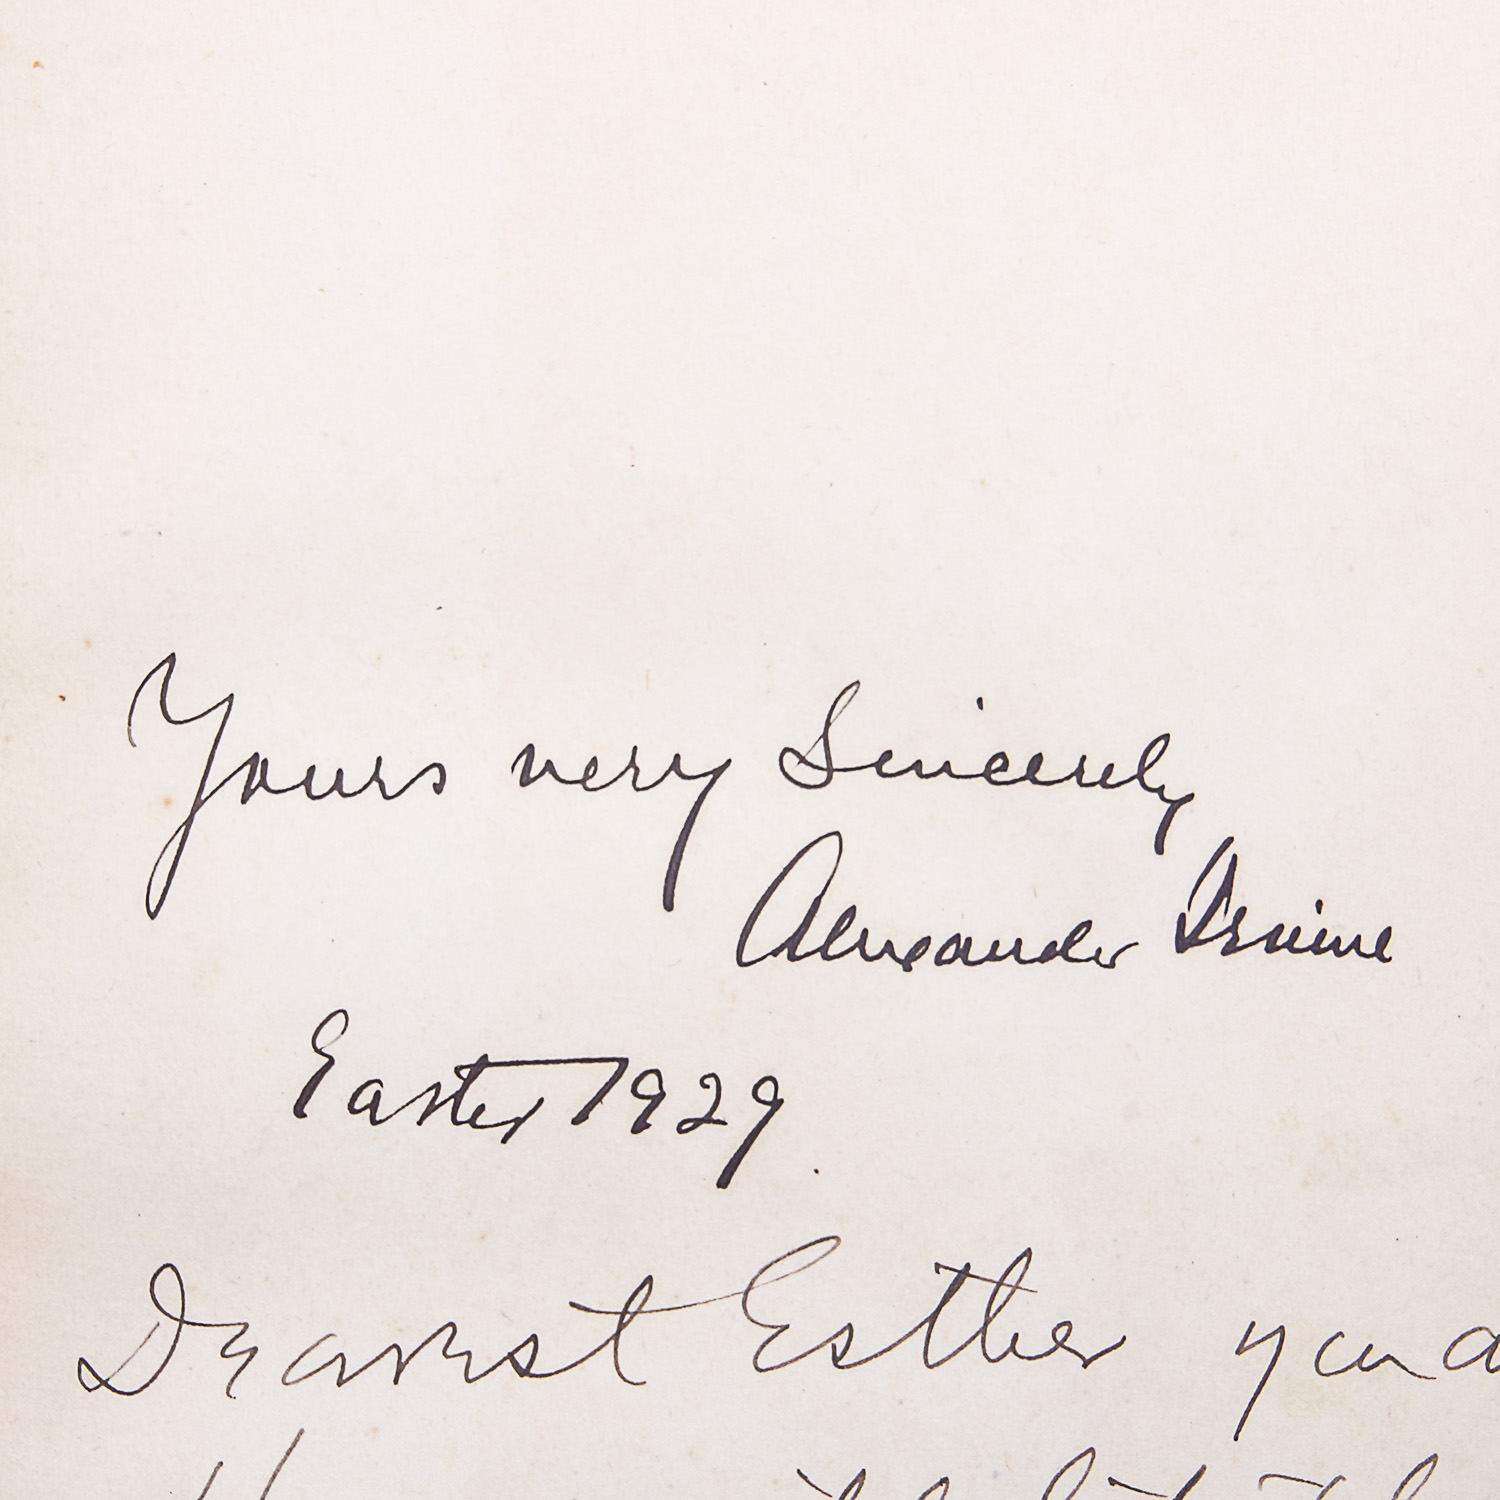 Yours very Sincerely
Alexander Irvine
Easter 1929
Dearest Esther you a